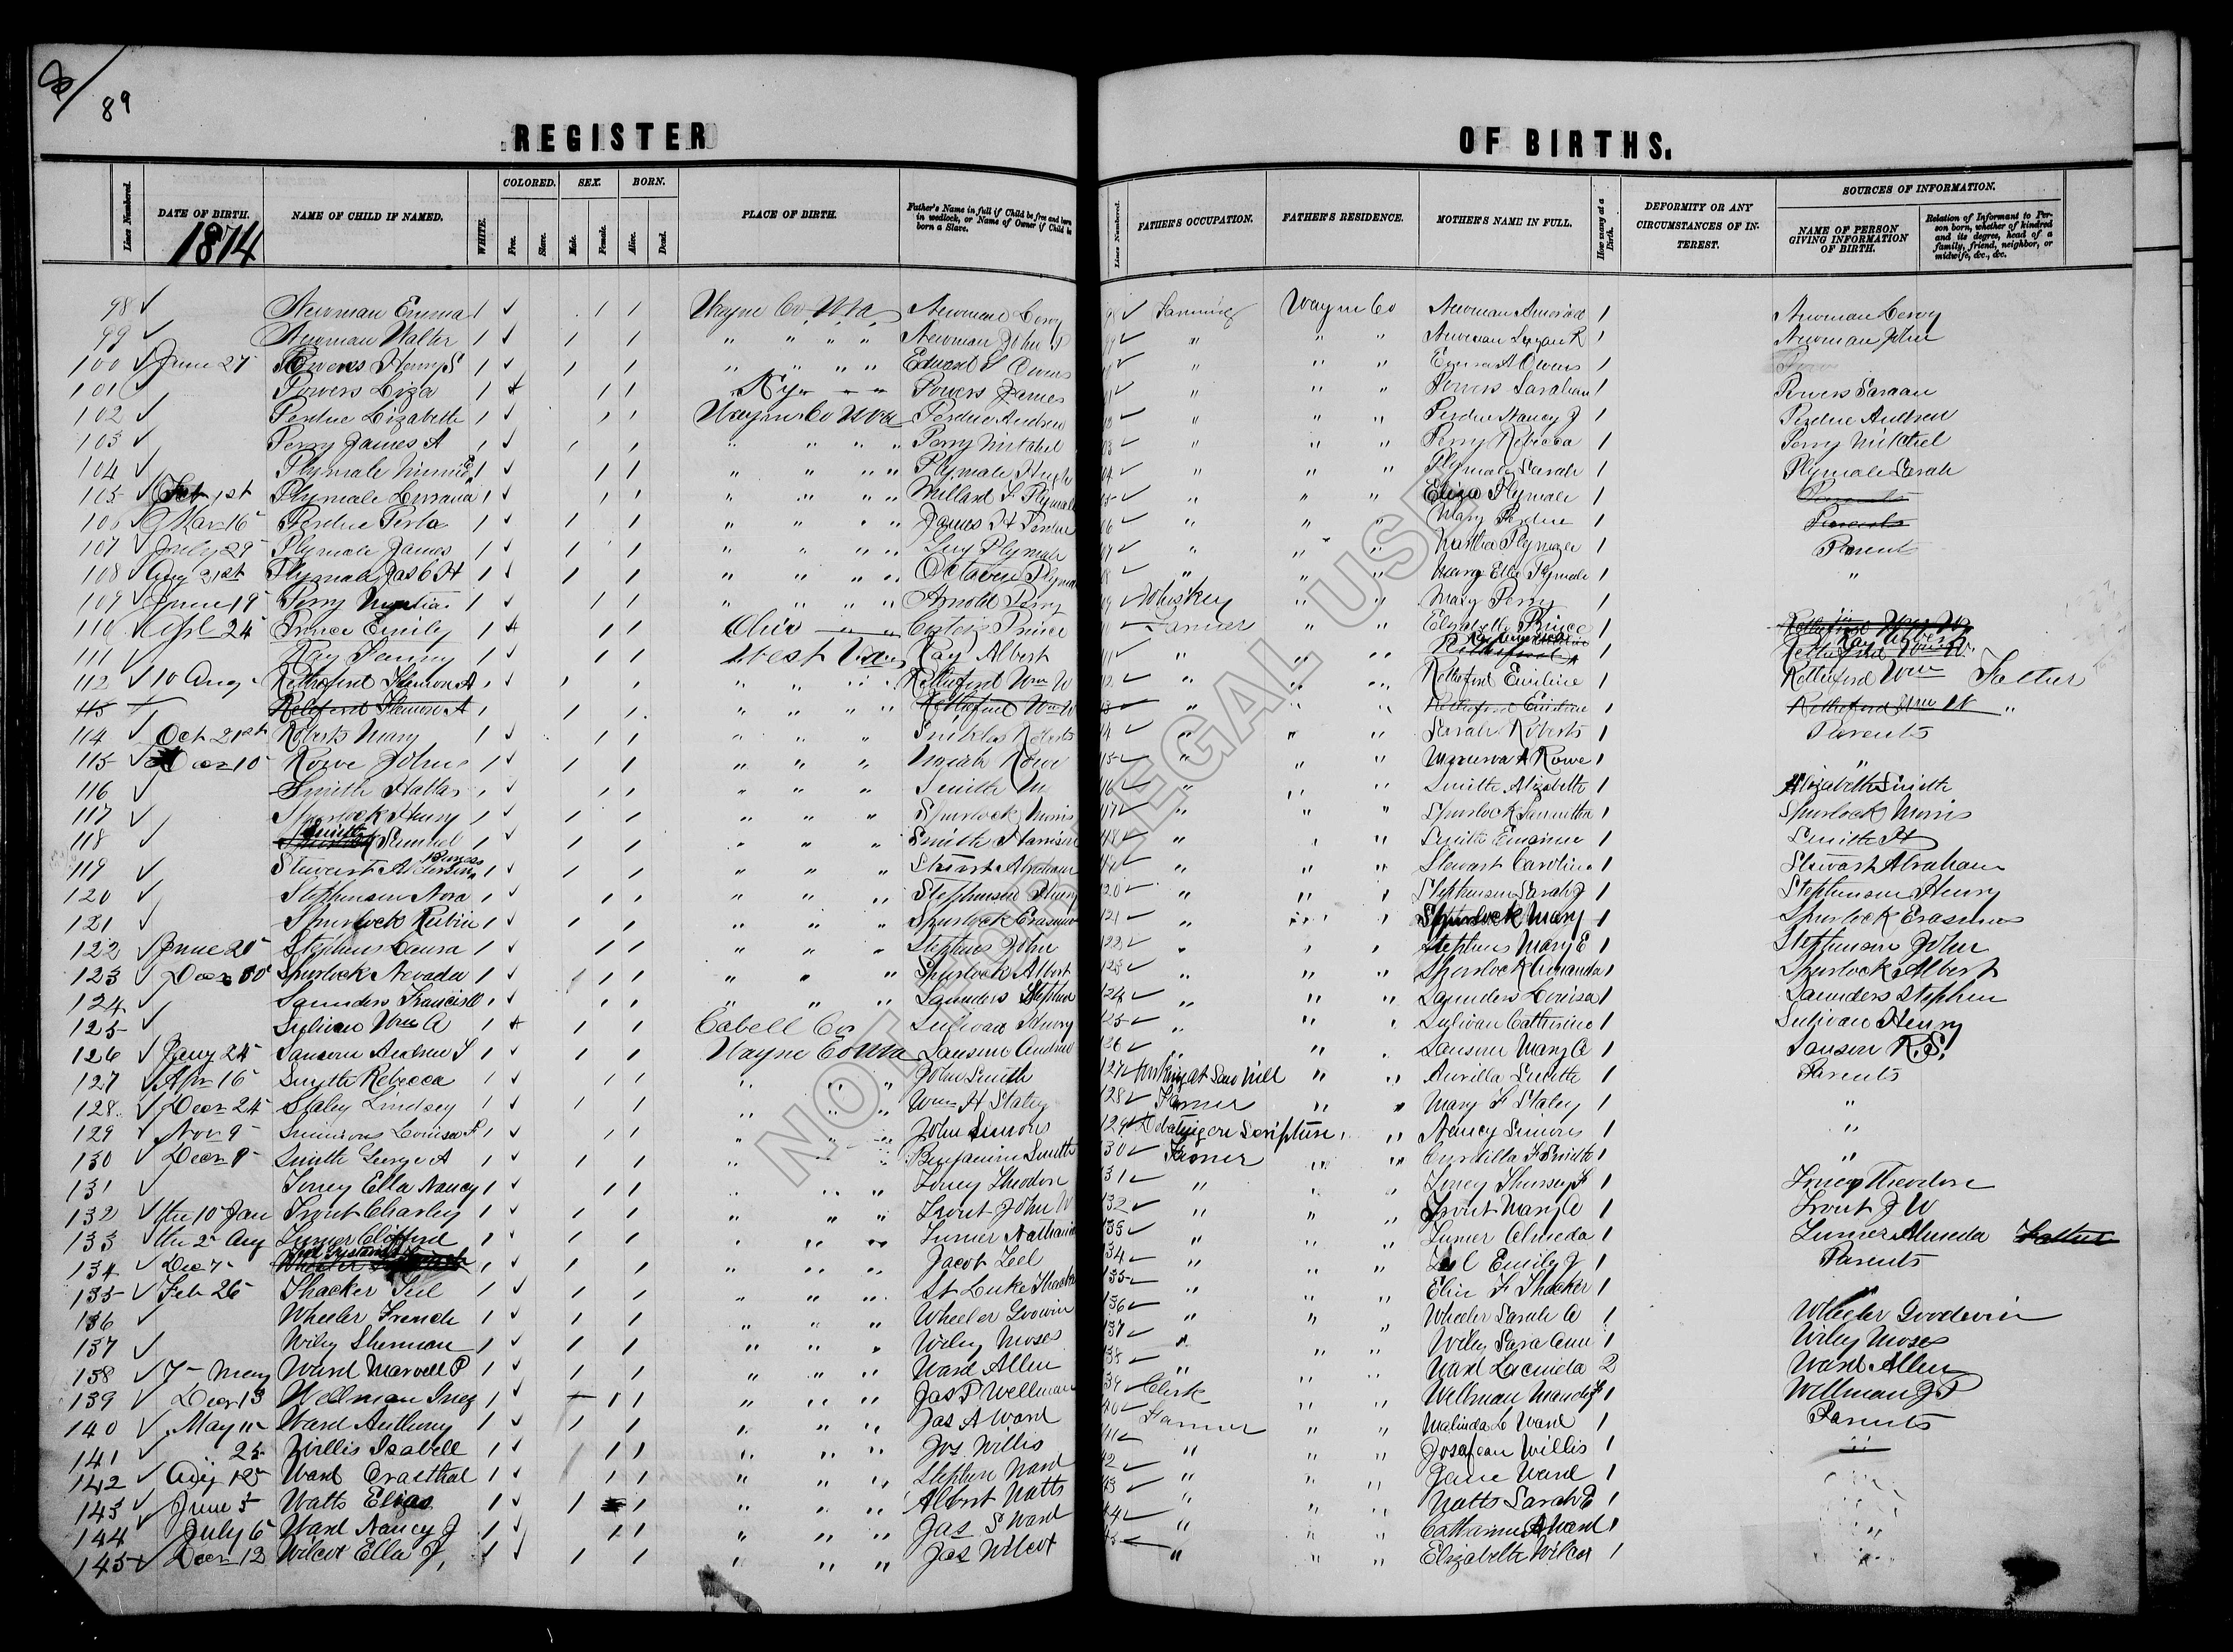 89
REGISTER OF BIRTHS.
Lines Numbered. DATE OF BIRTH. NAME OF CHILD IF NAMED. WHITE. COLORED. Free. Slave. SEX. Male. Female. BORN. Alive. Dead. PLACE OF BIRTH. Father's Name in full if Child be free and born in wedlock, or Name of Owner if Child be born a Slave. Lines Numbered. FATHER'S OCCUPATION. FATHER'S RESIDENCE. MOTHER'S NAME IN FULL. How many at a Birth. DEFORMITY OR ANY CIRCUMSTANCES OF INTEREST. SOURCES OF INFORMATION. NAME OF PERSON GIVING INFORMATION OF BIRTH. Relation of Informant to Person born, whether of kindred and its degree, head of a family, friend, neighbor, or midwife, &c., &c.
1874
98 ✓ Newman Emma 1 ✓ 1 1 Wayne Co W Va Newman ✓ Farming Wayne Co Newman 1 Newman
99 ✓ Newman Walter 1 ✓ 1 1 " " " " Newman John P ✓ " " " Newman Susan R 1 Newman John
100 ✓ June 27 Owens Henry S 1 ✓ 1 1 " " " " Edward S Owens ✓ " " " Emma A Owens 1
101 ✓ Powers Liza 1 1 1 Ky " " Powers James ✓ " " " Powers Sarahan 1 Powers Saraan
102 ✓ Perdue Lizabeth 1 ✓ 1 1 Wayne Co W Va Perdue Andrew ✓ " " " Perdue Nancy J 1 Perdue Andrew
103 ✓ Perry James A 1 ✓ 1 1 " " " " Perry Mitchel 03 ✓ " " " Perry Rebecca 1 Perry Mitchel
104 ✓ Plymale Minnie E 1 ✓ 1 1 " " " " Plymale Hugh 04 ✓ " " " Plymale Sarah 1 Plymale Sarah
105 ✓ 1st Plymale 1 ✓ 1 1 " " " " Millard F Plymale 05 ✓ " " " Eliza Plymale 1 Parents
106 ✓ Mar 16 Perdue 1 ✓ 1 1 " " " " James H Perdue 06 ✓ " " " Mary Perdue 1 Parents
107 ✓ July 29 Plymale James 1 ✓ 1 1 " " " " Plymale 07 ✓ " " " Martha Plymale 1 Parent
108 ✓ Aug 21st Plymale Jas 1 ✓ 1 1 " " " " Plymale ✓ " " " Mary Ellen Plymale 1 "
109 ✓ June 19 Perry 1 ✓ 1 1 " " " " Arnold Perry 09 ✓ Whiskey " " Mary Perry 1 "
110 ✓ Apl 24 Prince Emily 1 1 1 Ohio " " Prince ✓ Farmer " " Elizabeth Prince 1
111 ✓ Ray Fanny 1 ✓ 1 1 West Va Ray Albert ✓ " " " 1 Ray Albert
112 ✓ 10 Aug Retherford A 1 ✓ 1 1 " " " " Retherford Wm W ✓ " " " Retherford Emiline 1 Retherford Wm Father
113 Retherford A 1 1 1 " " " " Retherford Wm W ✓ " " " Retherford Emiline 1 Retherford Wm W "
114 ✓ Oct 21st Roberts Mary 1 ✓ 1 1 " " " Roberts 14 ✓ " " " Sarah Roberts 1 Parents
115 ✓ Decr 10 Rowe John 1 ✓ 1 1 " " " Rowe 15 ✓ " " " Manerva A Rowe 1 "
116 ✓ Smith 1 ✓ 1 1 " " " Smith M 16 ✓ " " " Smith Alizabeth 1 Alizabeth Smith
117 ✓ Spurlock Henry 1 ✓ 1 1 " " " Spurlock Morris 17 ✓ " " " Spurlock 1 Spurlock Morris
118 ✓ Smith Samuel 1 ✓ 1 1 " " " Smith Harrison 18 ✓ " " " Smith 1 Smith H
119 ✓ Stewart Anderson Burgess 1 ✓ 1 1 " " " Stewart Abraham ✓ " " " Stewart Caroline 1 Stewart Abraham
120 ✓ Stephenson Nora 1 ✓ 1 1 " " " Stephenson Henry 120 ✓ " " " Stephenson Sarah J 1 Stephenson Henry
121 ✓ Spurlock Rubin 1 ✓ 1 1 " " " Spurlock Erasmus 121 ✓ " " " Spurlock Mary 1 Spurlock Erasmus
122 ✓ June 20 Stephens Laura 1 ✓ 1 1 " " " Stephens John 122 ✓ " " " Stephens Mary E 1 Stephenson John
123 ✓ Decr 30 Spurlock Nevada 1 ✓ 1 1 " " " Spurlock Albert 123 ✓ " " " Spurlock Amanda 1 Spurlock Albert
124 ✓ Saunders Francis 1 ✓ 1 1 " " " Saunders Stephen 124 ✓ " " " Saunders Louisa 1 Saunders Stephen
125 ✓ Sulivan Wm A 1 1 1 Cabell Co Sulivan Henry 125 ✓ " " " Sulivan Catherine 1 Sulivan Henry
126 ✓ Jany 24 Sansom Andrew S 1 ✓ 1 1 Wayne Co W Va Sansom Andrew 126 ✓ " " " Sansom Mary A 1 Sansom R. S.
127 ✓ Apr 16 Smyth Rebecca 1 ✓ 1 1 " " " John Smith 127 ✓ Working at Saw Mill " " Aurilla Smith 1 Parents
128 ✓ Decr 24 Staley Lindsey 1 ✓ 1 1 " " " Wm H Staley 128 ✓ Farmer " " Mary F Staley 1 "
129 ✓ Nov 9 Simmons Louisa F 1 ✓ 1 1 " " " John Simons 129 ✓ Debating on Scripture " " Nancy Simons 1 "
130 ✓ Decr 9 Smith George A 1 ✓ 1 1 " " " Benjamin Smith 130 ✓ Farmer " " F Smith 1 "
131 ✓ Toney Ella Nancy 1 ✓ 1 1 " " " Toney Theodore 131 ✓ " " " Toney F 1 Toney Theodore
132 ✓ the 10 Jan Trout Charley 1 ✓ 1 1 " " " Trout John W 132 ✓ " " " Trout Mary A 1 Trout J W
133 ✓ the 2 Aug Turner Clifford 1 ✓ 1 1 " " " Turner Nathaniel 133 ✓ " " " Turner Almeda 1 Turner Almeda Father
134 ✓ Dec 7 1 ✓ 1 1 " " " Jacob Teel 134 ✓ " " " Emily J 1 Parents
135 ✓ Feb 26 Thacker 1 ✓ 1 1 " " " St Luke Thacker 135 ✓ " " " F Thacker 1
136 ✓ Wheeler French 1 ✓ 1 1 " " " Wheeler Goowin 136 ✓ " " " Wheeler Sarah A 1 Wheeler Goodwin
137 ✓ Wiley Sherman 1 ✓ 1 1 " " " Wiley Moses 137 ✓ " " " Wiley Sara Ann 1 Wiley Moses
138 ✓ 7 May Ward Marvell P 1 ✓ 1 1 " " " Ward Allen 138 ✓ " " " Ward Lacinda 2 Ward Allen
139 ✓ Decr 13 Wellman Inez 1 ✓ 1 1 " " " Jas P Wellman 39 ✓ Clerk " " Wellman 1 Wellman J P
140 ✓ May 11 Ward Anthony 1 ✓ 1 1 " " " Jas A Ward 40 ✓ Farmer " " Malinda Ward 1 Parents
141 ✓ " 25 Willis Isabell 1 ✓ 1 1 " " " Jos Willis 41 ✓ " " " Willis 1 "
142 ✓ Aug Ward 1 ✓ 1 1 " " " Stephen Ward 42 ✓ " " " Jane Ward 1
143 ✓ June 5 Watts Elias 1 ✓ 1 1 " " " Albert Watts 43 ✓ " " " Watts Sarah E 1
144 ✓ July 6 Ward Nancy J 1 ✓ 1 1 " " " Jas S Ward 44 ✓ " " " Catharine A Ward 1 "
145 Decr 12 Wilcox Ella J, 1 ✓ 1 1 " " " Jas Wilcox 45 " " " Elizabeth Wilcox 1 "
NOT FOR LEGAL USE